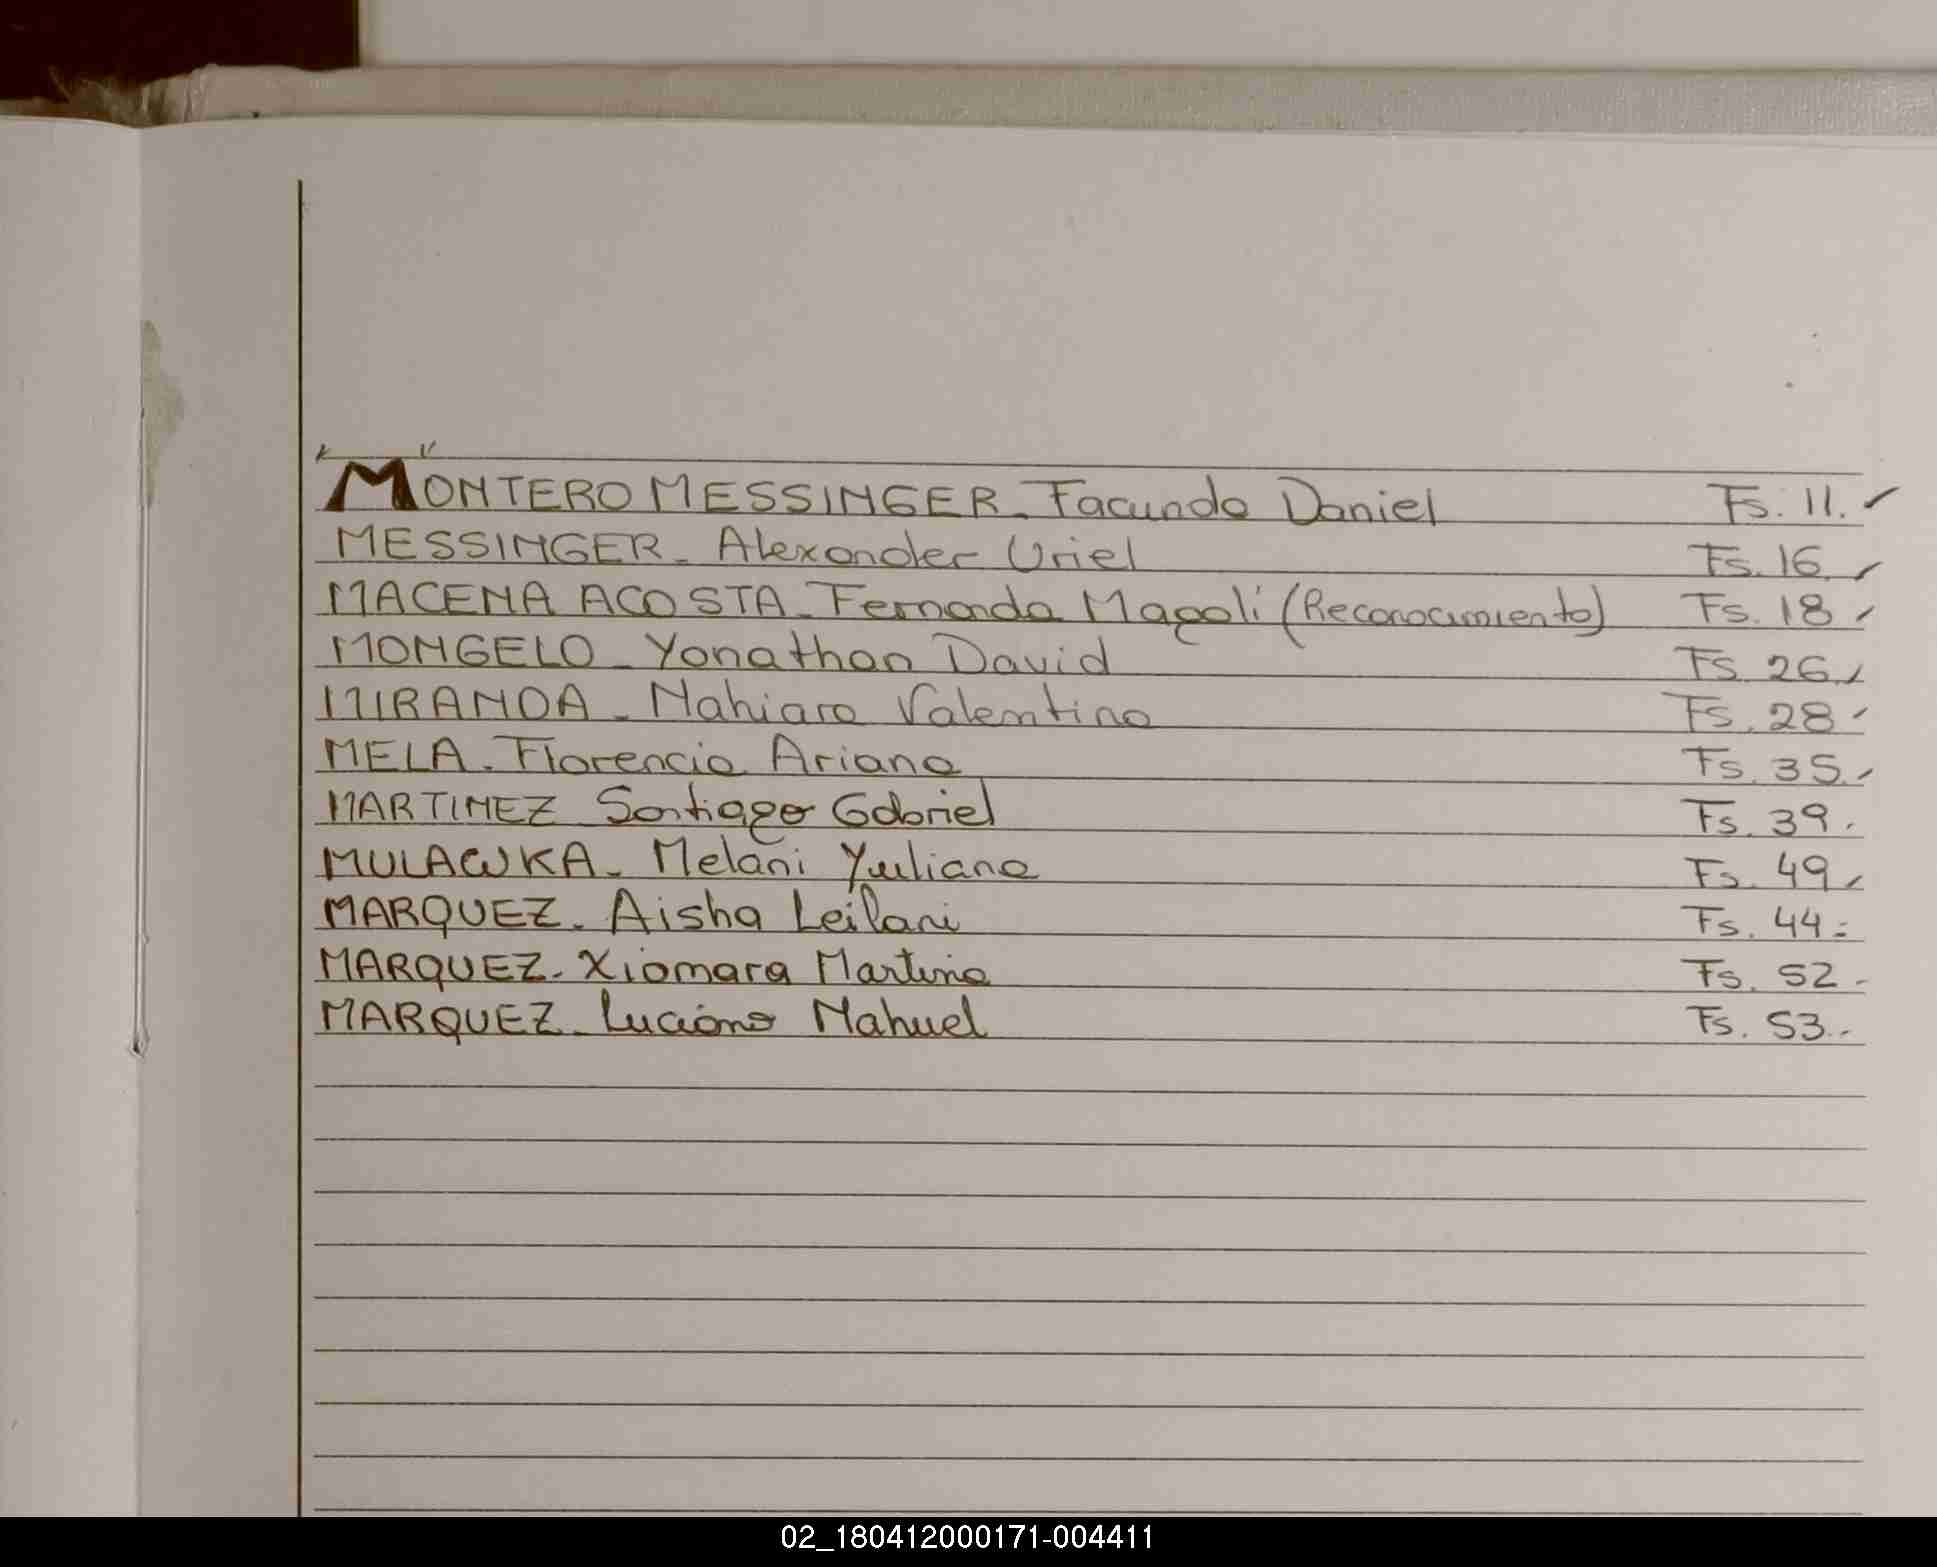 MONTERO MESSINGER - Facundo Daniel Fs. 11.
MESSINGER - Alexander Uriel Fs. 16.
MACENA ACOSTA - Fernanda Magali (Reconocimiento) Fs. 18
MONGELO - Yonathan David Fs. 26.
MIRANDA - Nahiara Valentina Fs. 28
MELA - Florencia Ariana Fs. 35.
MARTINEZ Santiago Gabriel Fs. 39.
MULAWKA - Melani Yuliana Fs. 49
MARQUEZ - Aisha Leilani Fs. 44
MARQUEZ - Xiomara Martina Fs. 52
MARQUEZ - Luciano Nahuel Fs. 53.
02_180412000171-004411